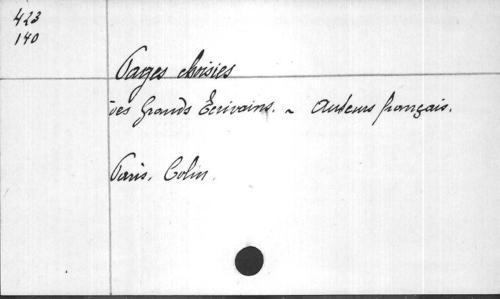 423
140
Pages choisies
des Grands Écrivains. ~ Auteurs français.
Paris, Colin.